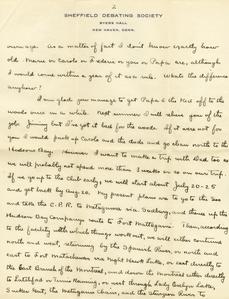 2
SHEFFIELD DEBATING SOCIETY
BYERS HALL
NEW HAVEN, CONN.
average. As a matter of fact I dont know exactly how
old Mama or Carola or Frieda or you or Papa are, although
I would come within a year of it as a rule. Whats the difference
anyhow!
I am glad you manage to get Papa & the Kid off to the
woods once in a while. Next summer I will share you of the
job. Jimmy but I've got it bad for the woods. If it were not for
you I would pack up Carola and the duds and go clean north to the
Hudson Bay. I want to make a trip with Dad too so
we will probably not spend more than 3 weeks or so on our trip.
If we go to the Club early, we will start about July 20-25
and get back by Aug. 20. My present plans are to go to the Soo
and take the C.P.R. to Metagama via Sudbury, and thence up the
Hudson Bay Company's route to Fort Mattagami. Then, according
to the facility with which things work out, we will either continue
north and west, returning by the Spanish River, or north and
east to Fort Matachewan via Night Hawk Lake, or east directly to
the East Branch of the Montreal, and down the Montreal either directly
to Latchford or Temiskaming, or east through Lady Evelyn Lake,
to Smoke Lake, the Metagama Chain, and the Sturgeon River to